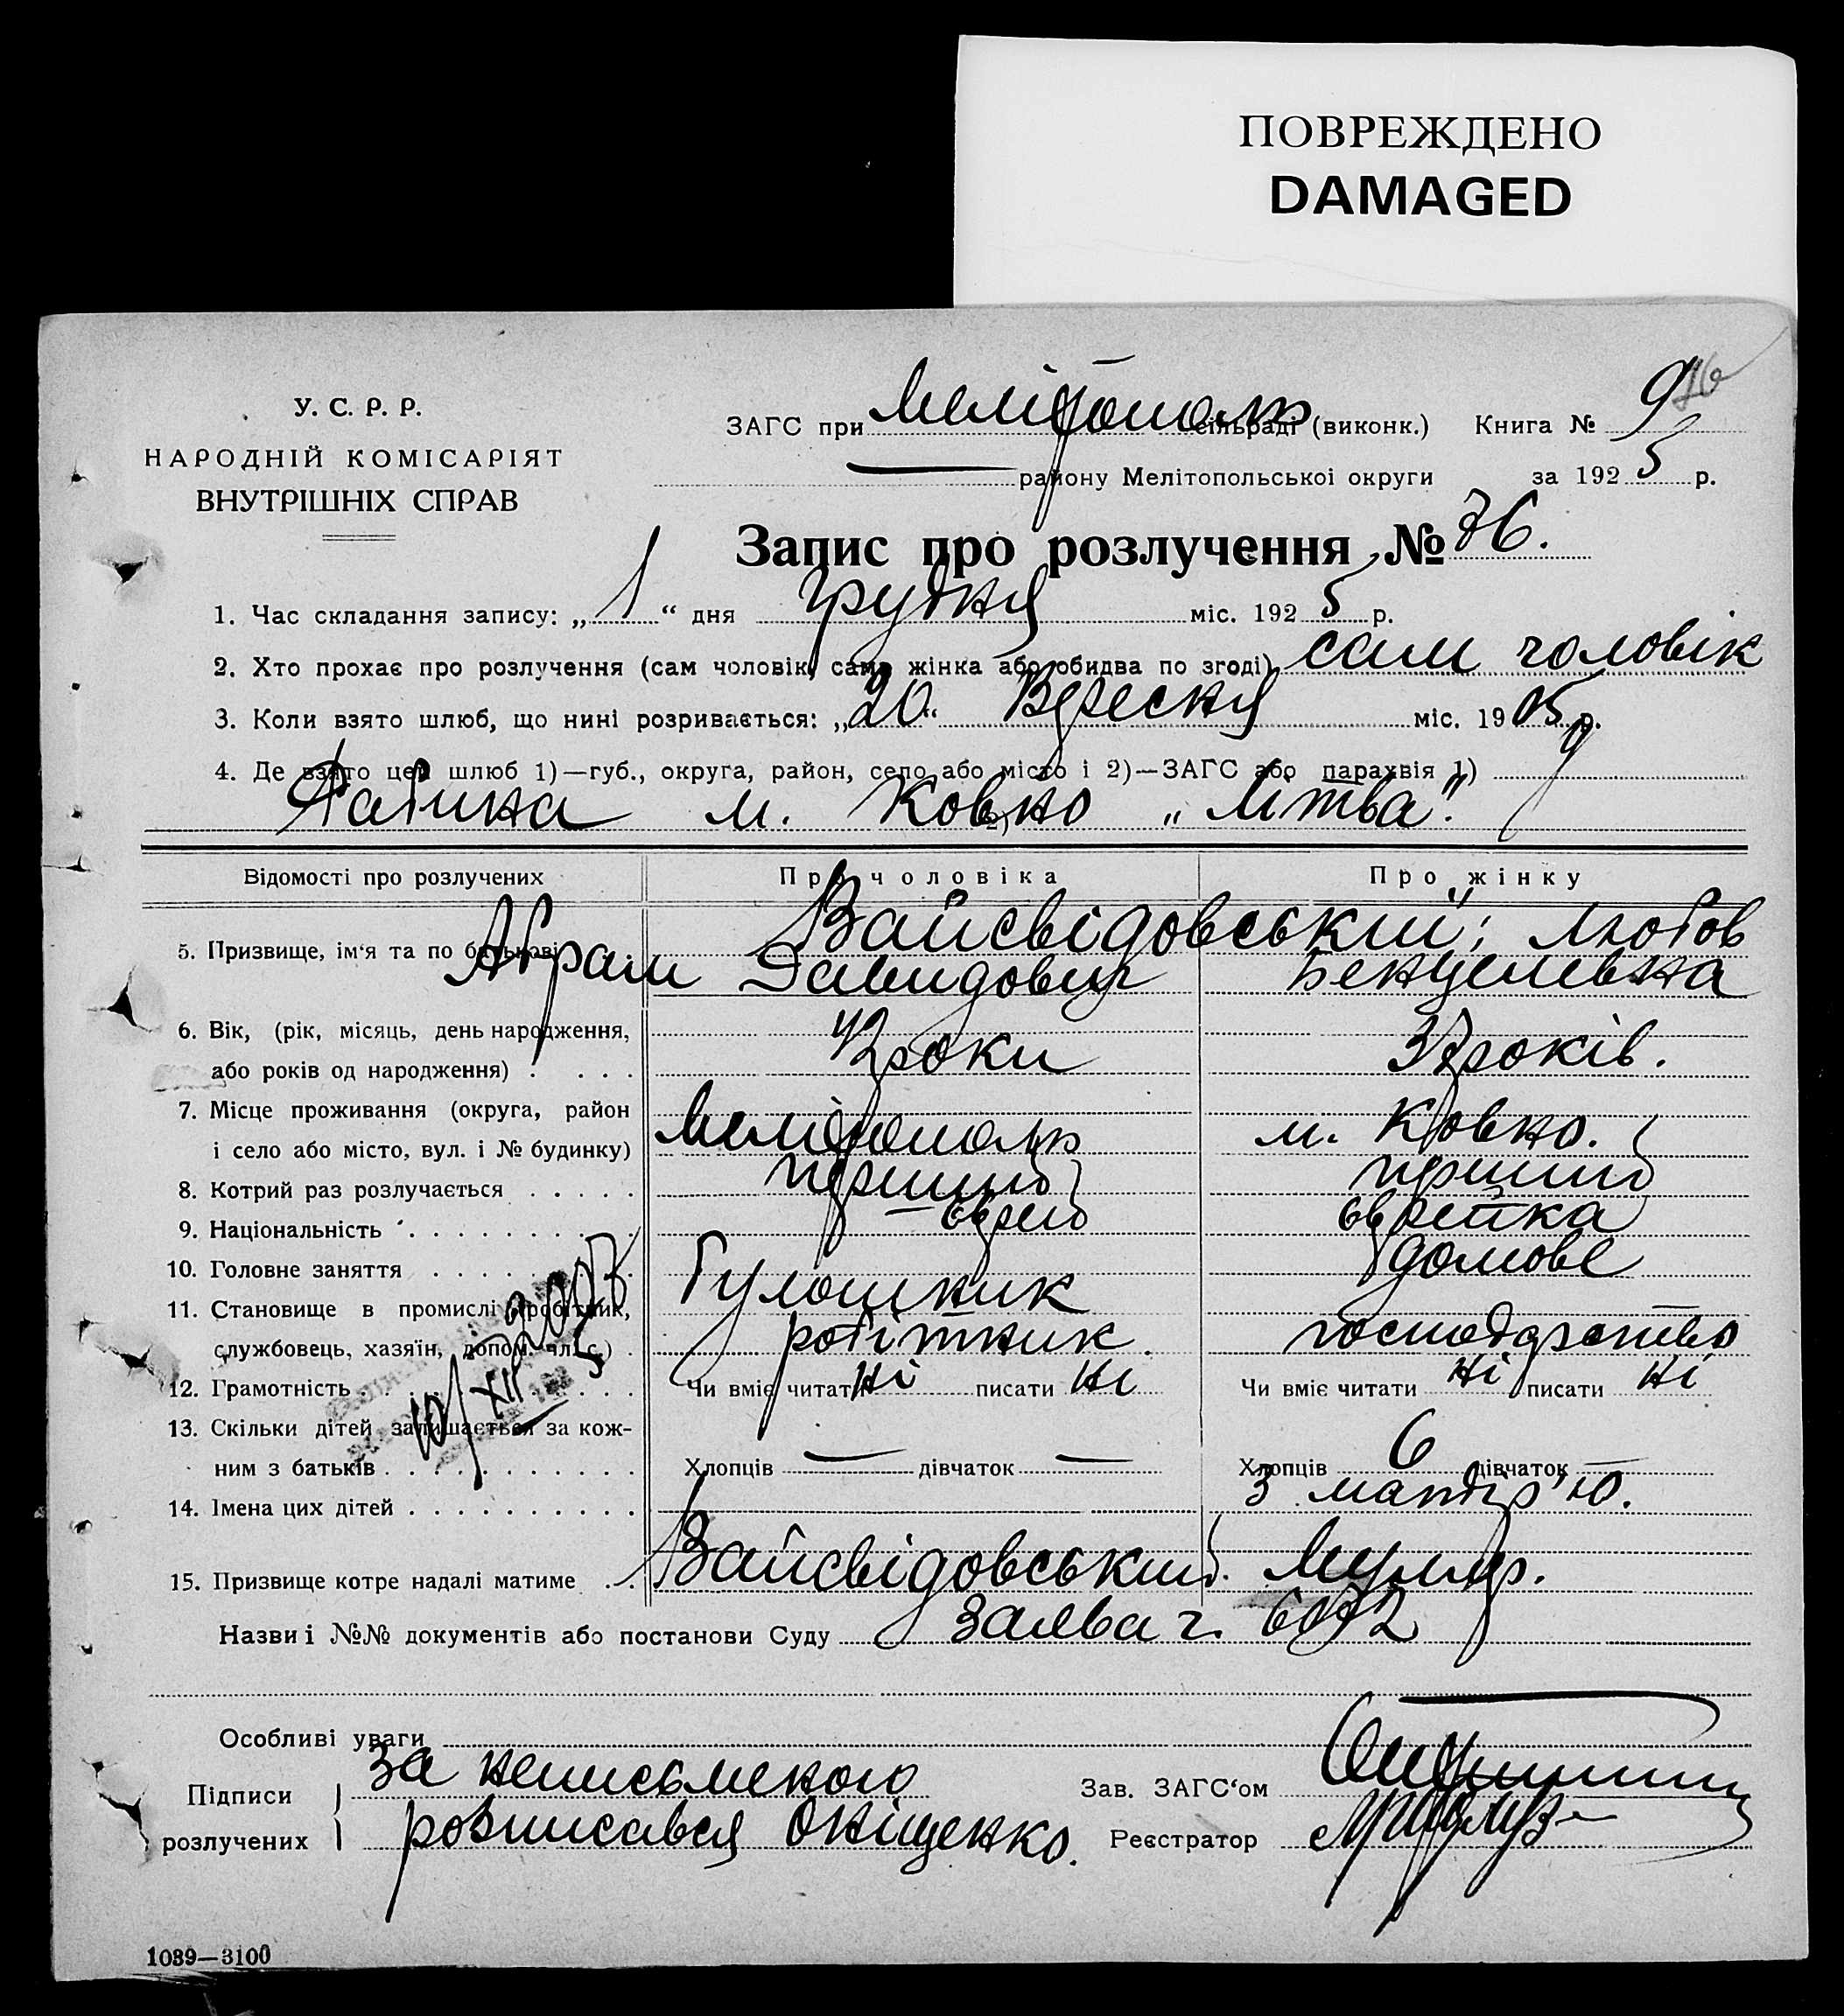 ПОВРЕЖДЕНО
DAMAGED
У. С. Р. Р.
НАРОДНІЙ КОМІСАРІЯТ
ВНУТРІШНІХ СПРАВ
ЗАГС при Мелітополь сільраді (виконк.) Книга № 9
району Мелітопольської округи за 1925 р.
Запис про розлучення № 76.
1. Час складання запису: „1“ дня грудня міс. 1925 р.
2. Хто прохає про розлучення (сам чоловік, сама жінка або обидва по згоді) сам чоловік
3. Коли взято шлюб, що нині розривається: „20“ Вересня міс. 1905 р.
4. Де взято цей шлюб 1)—губ., округа, район, село або місто і 2)—ЗАГС або парахвія 1)
Рабина м. Ковно 2) „Літва“.
Відомості про розлучених Про чоловіка Про жінку
5. Призвище, ім‘я та по батькові Вайсвідовський; Любов
Абрам Давидович Бенцелевна
6. Вік, (рік, місяць, день народження, 42 роки 37 років.
або років од народження) . . . .
7. Місце проживання (округа, район
і село або місто, вул. і № будинку) Мелітополь м. Ковно.
8. Котрий раз розлучається . . . . . перший перший
9. Національність . . . . . . . . єврей єврейка
10. Головне заняття . . . . . . . домове
11. Становище в промислі (робітник,
службовець, хазяїн, допом. чл. с.) . робітник. господарство
12. Грамотність Чи вміє читати ні писати ні Чи вміє читати ні писати ні
10/XII 5
13. Скільки дітей залишається за кож-
ним з батьків . . . . . . . . . . Хлопців — дівчаток — Хлопців 6 дівчаток —
14. Імена цих дітей . . . . . . . . . з матір'ю.
15. Призвище котре надалі матиме . . Вайсвідовський.
Назви і №№ документів або постанови Суду Заява ч. 6072
Особливі уваги
Підписи за неписьменого Зав. ЗАГС‘ом
розлучених розписався Оніщенко. Реєстратор
1039—3100